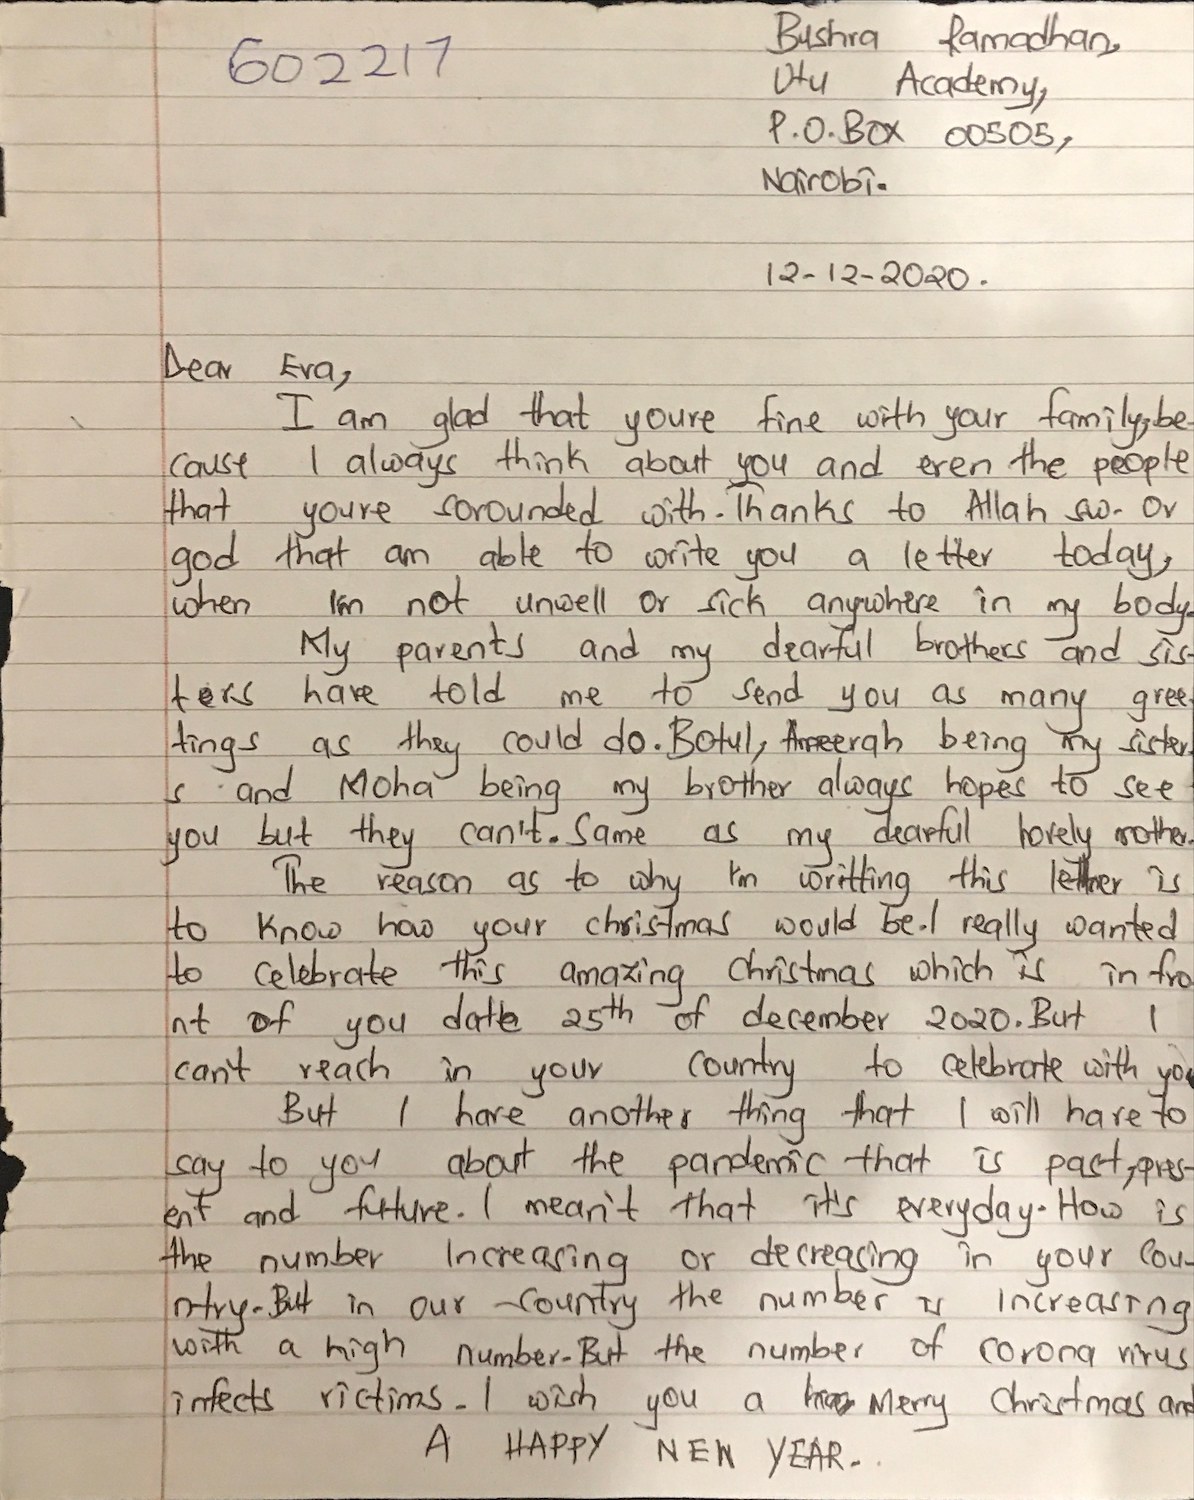 602217
Bushra Ramadhan,
Utu Academy,
P.O.Box 00505,
Nairobi.
12-12-2020.
Dear Eva,
I am glad that youre fine with your family, be-
cause I always think about you and even the people
that youre sorounded with. Thanks to Allah sw. Or
god that am able to write you a letter today,
when I'm not unwell or sick anywhere in my body.
My parents and my dearful brothers and sis-
ters have told me to send you as many gree-
tings as they could do. Botul, Ameerah being my sister
s and Moha being my brother always hopes to see
you but they can't. Same as my dearful lovely mother.
The reason as to why I'm writting this letter is
to know how your christmas would be. I really wanted
to celebrate this amazing Christmas which is in fro
nt of you date 25th of december 2020. But I
can't reach in your country to celebrate with you
But I have another thing that I will have to
say to you about the pandemic that is past, pres-
ent and future. I mean't that it's everyday. How is
the number Increasing or decreasing in your Cou-
ntry. But in our Country the number is Increasing
with a high number. But the number of corona virus
infects victims. I wish you a Merry Christmas and
A HAPPY NEW YEAR.